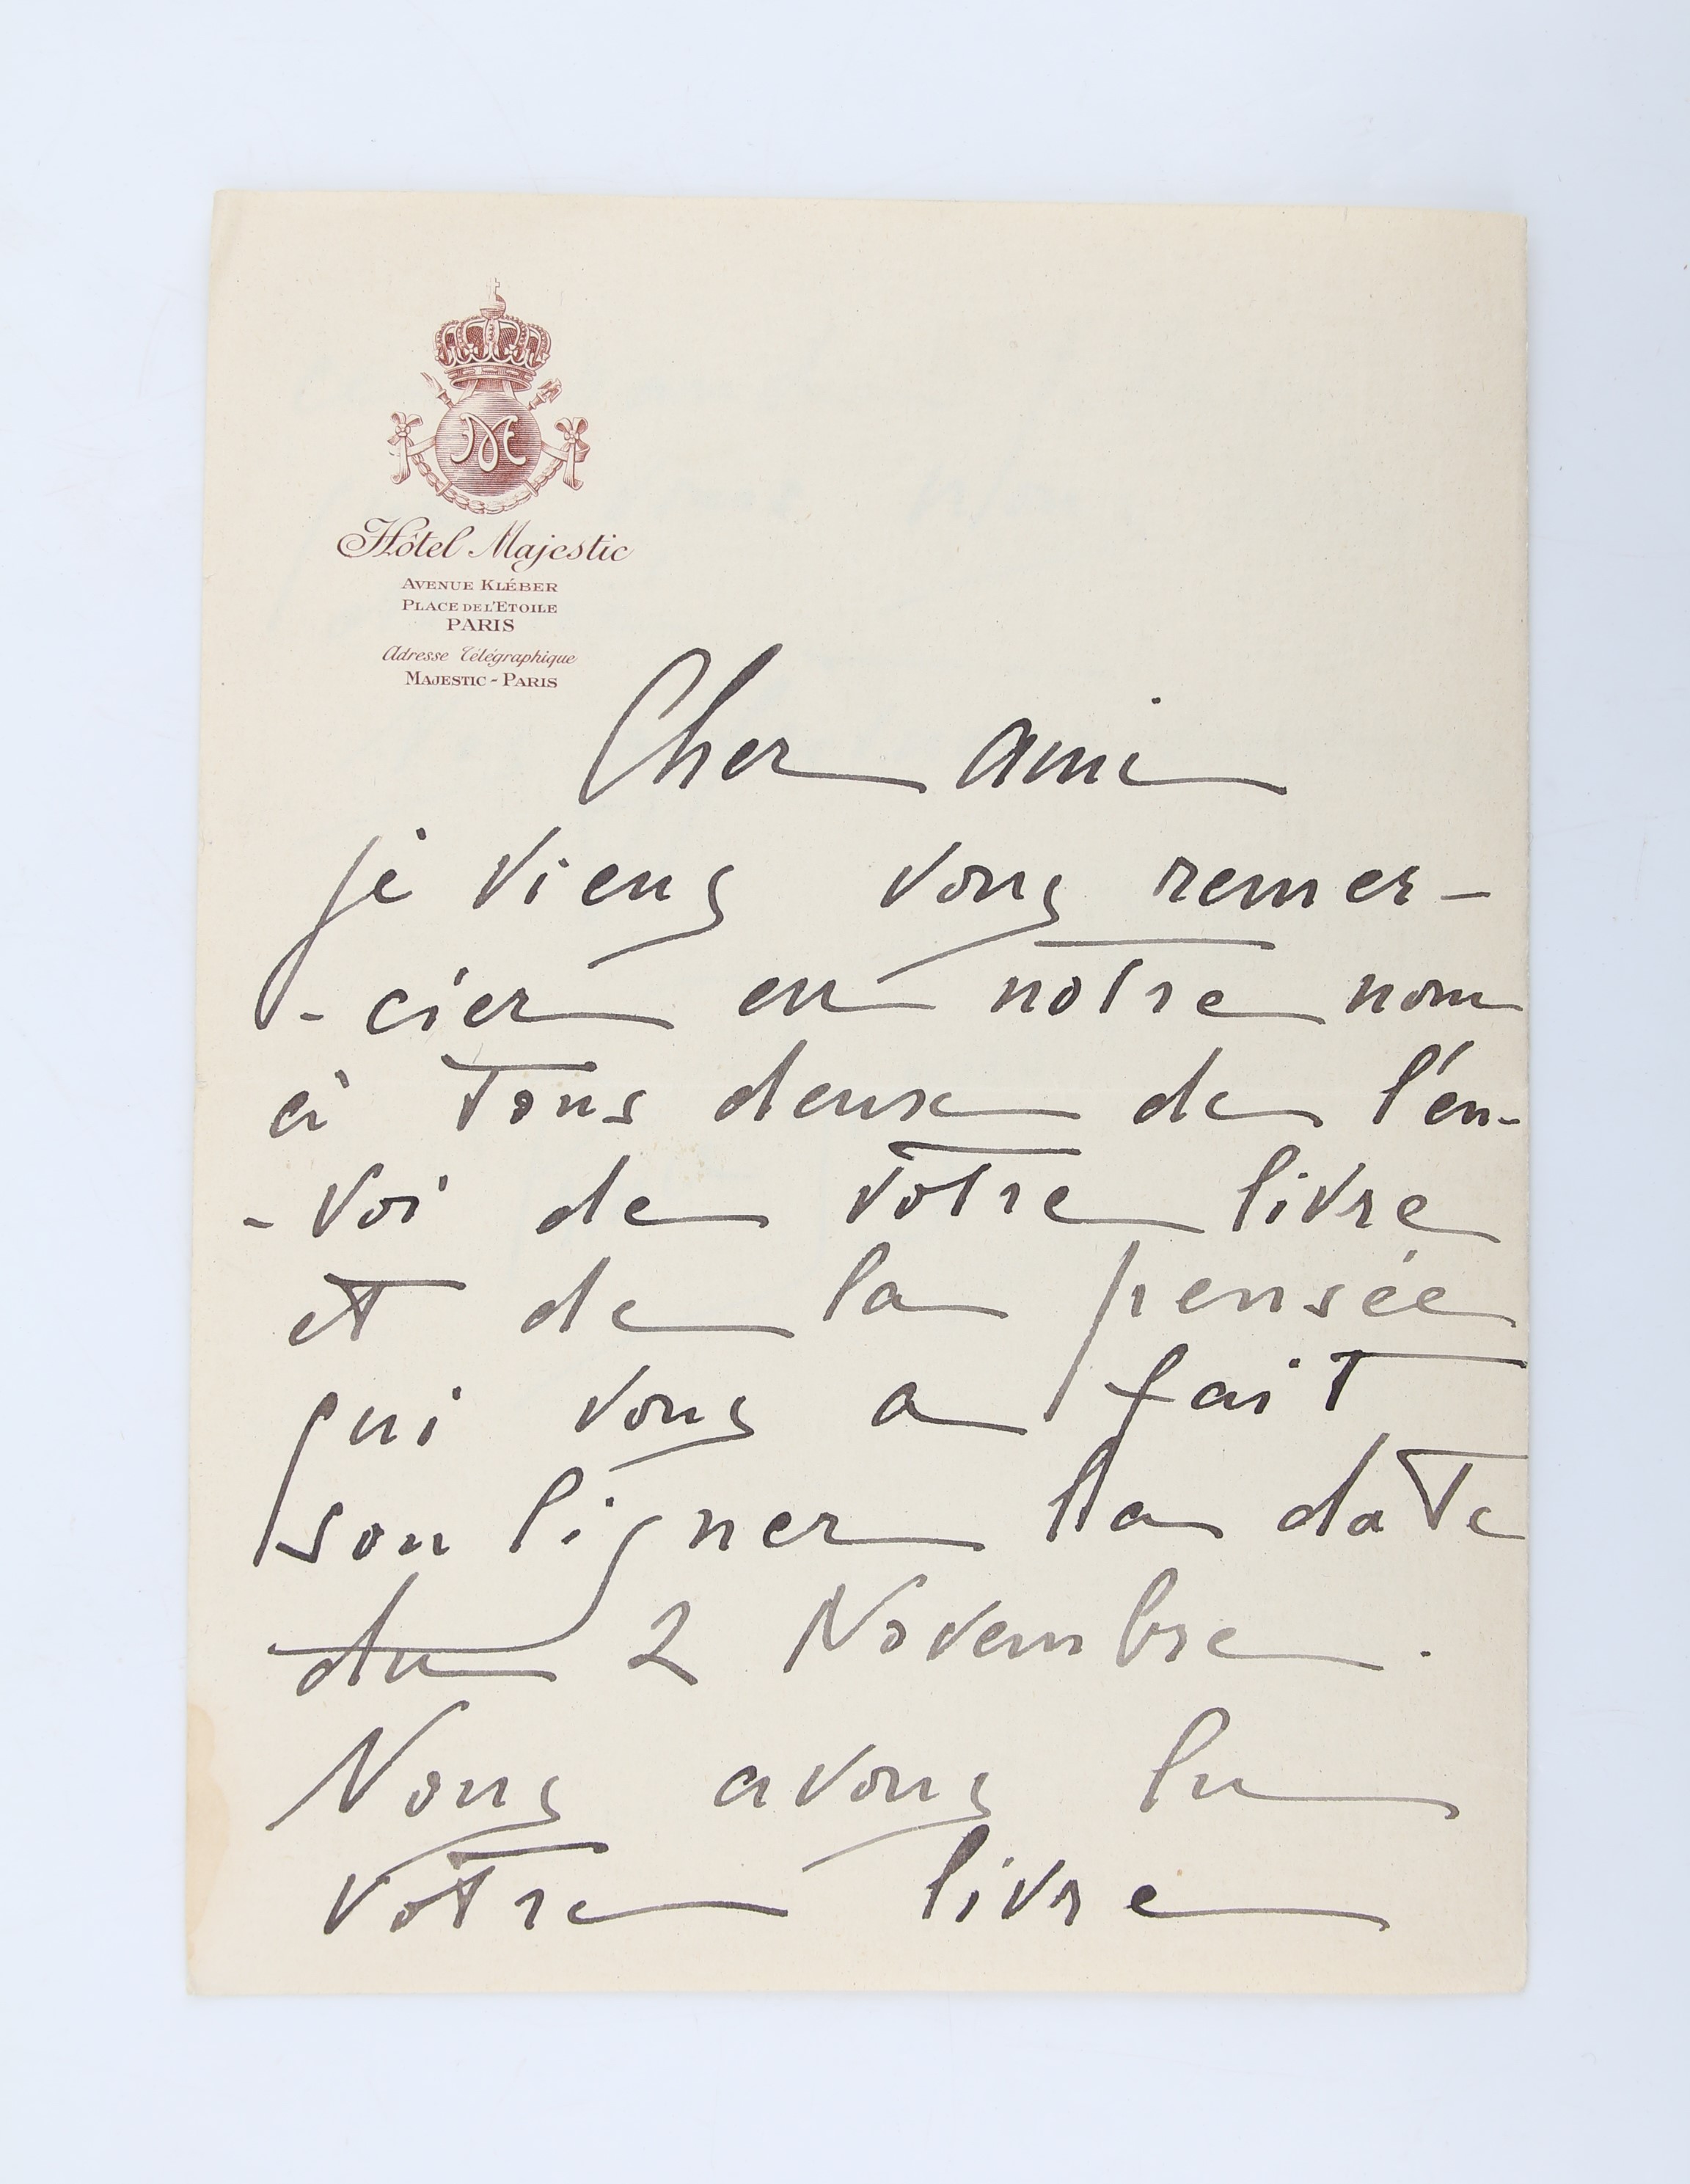 M
Hôtel Majestic
AVENUE KLÉBER
PLACE DE L'ETOILE
PARIS
Adresse Télégraphique
MAJESTIC - PARIS
Cher ami
je viens vous remer-
- cier en notre nom
à tous deux de l'en-
- voi de votre livre
et de la pensée
qui vous a fait
souligner la date
du 2 Novembre.
Nous avons lu
votre livre